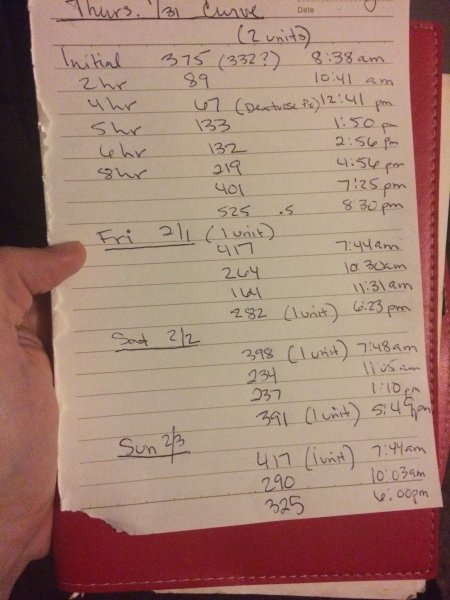 Thurs. 1/31 Curve
Date
(2 units)
Initial 375 (332?) 8:38am
2hr 89 10:41 am
4hr 67 (Dextrose Po) 12:41 pm
5hr 133 1:50 pm
6hr 132 2:56 pm
8hr 219 4:56 pm
401 7:25 pm
525 .5 8:30 pm
Fri 2/1 (1 unit)
417 7:44am
264 10:30am
164 11:31am
282 (1 unit) 6:23 pm
Sat 2/2
398 (1 unit) 7:48am
234 11:05am
237 1:10pm
391 (1 unit) 5:49pm
Sun 2/3
417 (1 unit) 7:44am
290 10:03am
325 6:00pm